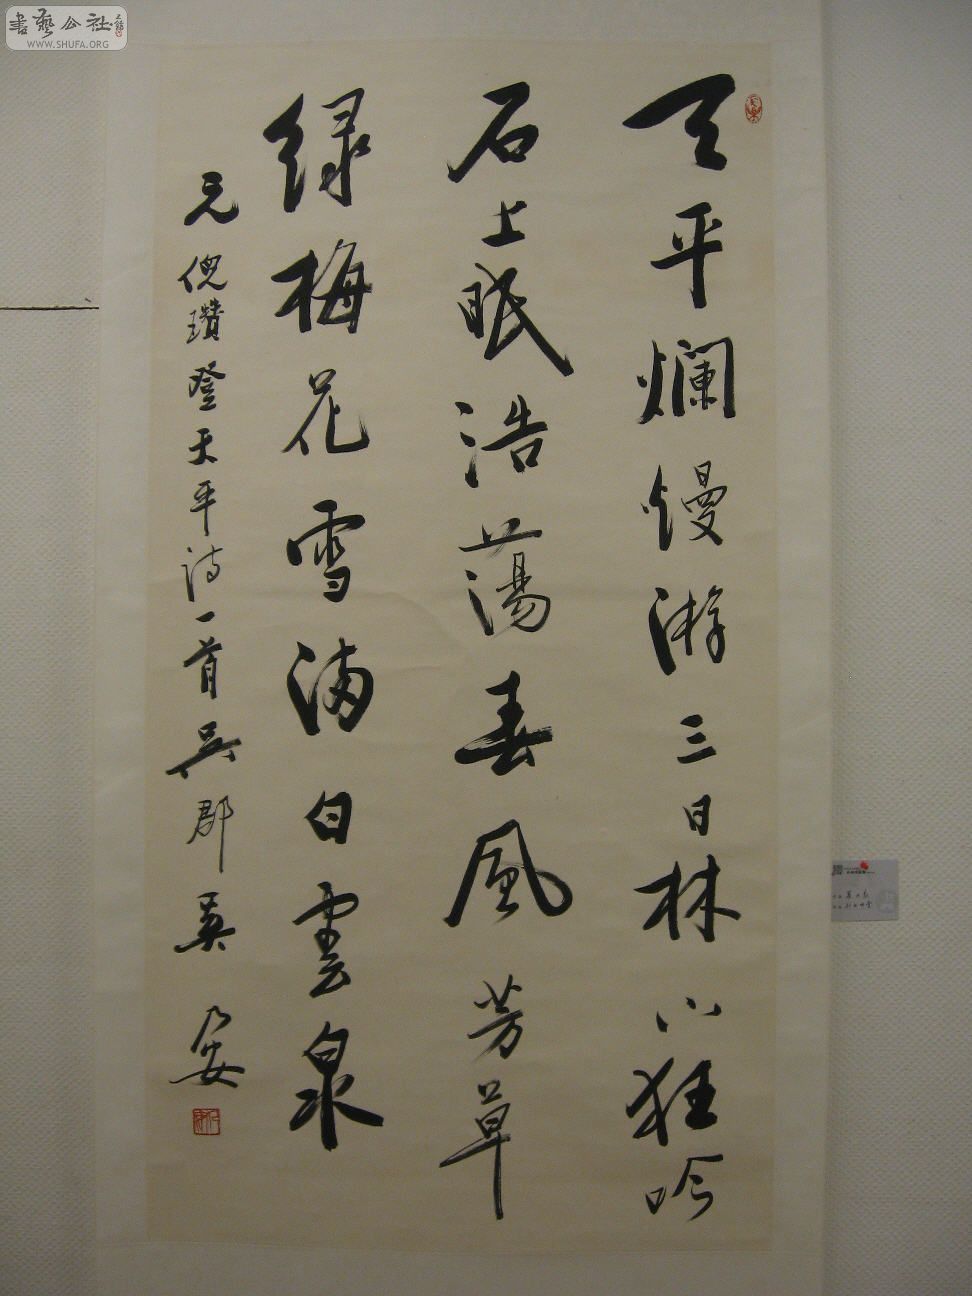 天平爛熳游三日林下狂吟
石上眠浩蕩春風芳草
绿梅花雪满白雲泉
元倪瓚登天平诗一首吴郡吴乃安
書藝公社
WWW.SHUFA.ORG